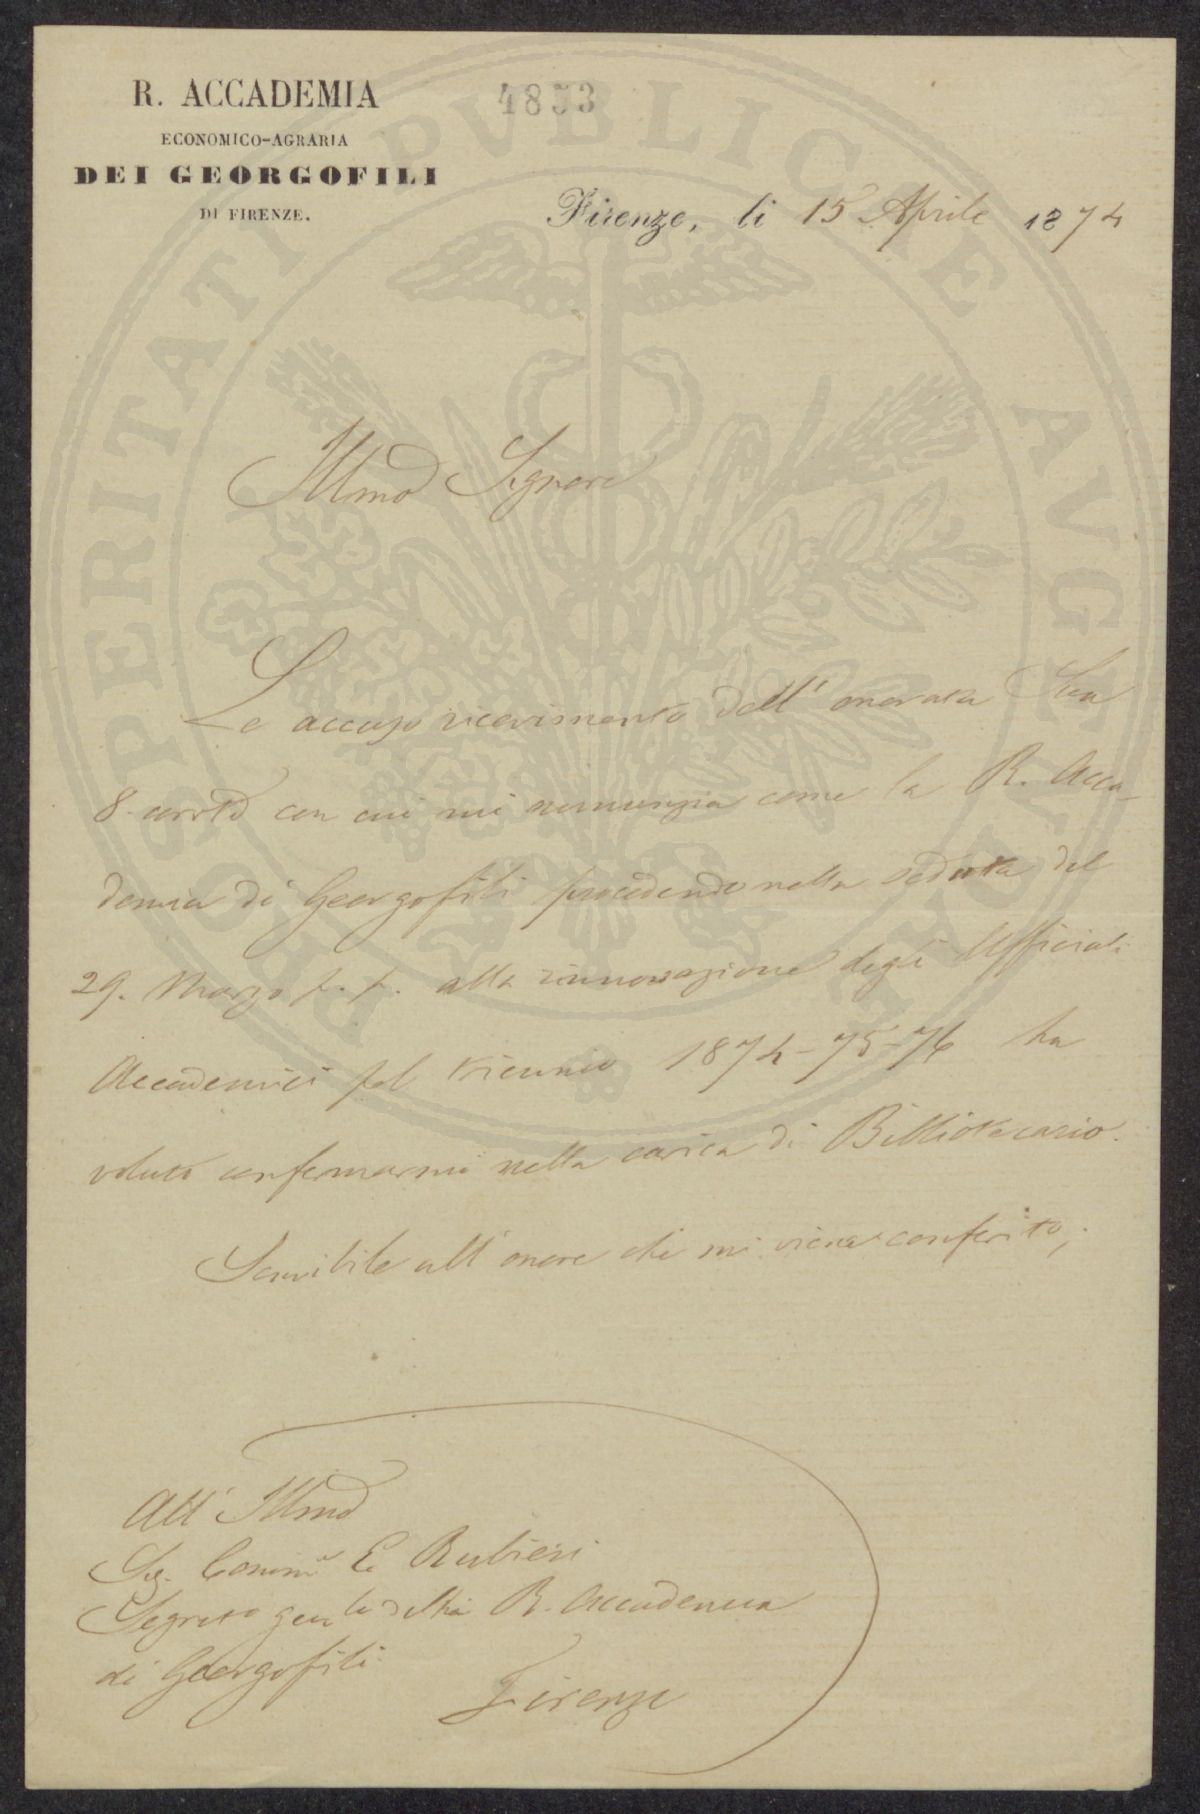 R. ACCADEMIA
ECONOMICO-AGRARIA
DEI GEORGOFILI
DI FIRENZE.
4853
Firenze, li 15 Aprile 1874
PROSPERITATI PVBLICAE AVGENDAE
Illmo Signore
Le accuso ricevimento dell' onorata Sua
8. corrte con cui mi annunzia come la R. Acca-
demia di Georgofili procedendo nella seduta del
29. Marzo p.p. alla rinnovazione degli Ufficiali
Accademici pel triennio 1874-75-76 ha
voluto confermarmi nella carica di Bibliotecario.
Sensibile all' onore che mi viene conferito,
All' Illmo
Sig. Comm. E. Rubieri
Segreto genle della R. Accademia
di Georgofili
Firenze